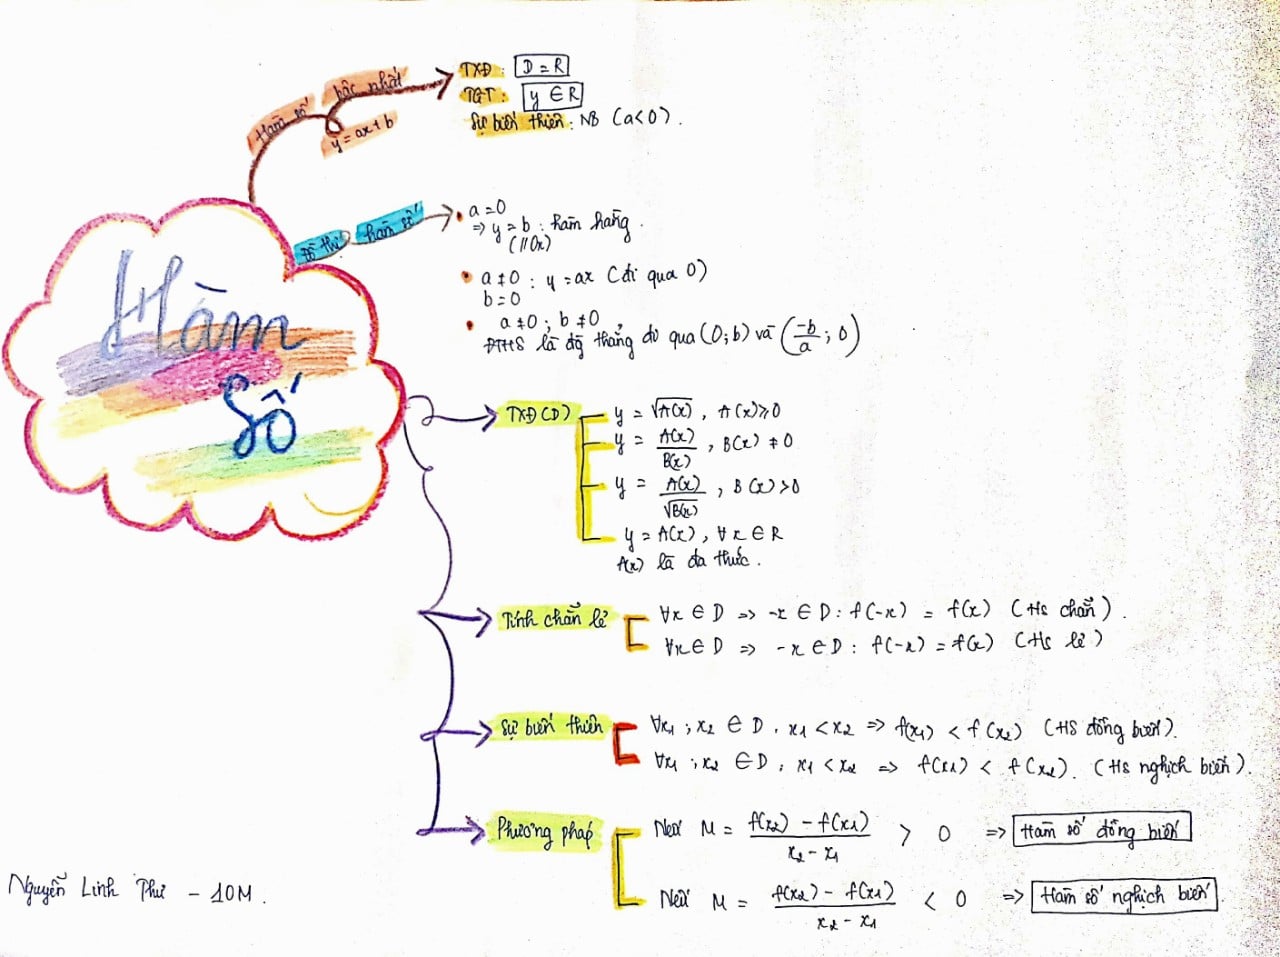 Hàm
Số
Hàm số bậc nhất
y = ax + b
TXĐ: D = R
TGT: y ∈ R
Sự biến thiên: NB (a<0).
Đồ thị hàm số
• a = 0
⇒ y = b : hàm hằng.
(// Ox)
• a ≠ 0 : y = ax (đi qua O)
b = 0
• a ≠ 0 ; b ≠ 0
ĐTHS là đg thẳng đi qua (0; b) và (-b/a ; 0)
TXĐ (D)
y = √A(x) , A(x) ≥ 0
y = A(x)/B(x) , B(x) ≠ 0
y = A(x)/√B(x) , B(x) > 0
y = A(x) , ∀x ∈ R
A(x) là đa thức.
Tính chẵn lẻ
∀x ∈ D => -x ∈ D : f(-x) = f(x) (HS chẵn).
∀x ∈ D => -x ∈ D : f(-x) = f(x) (HS lẻ)
Sự biến thiên
∀x₁ ; x₂ ∈ D , x₁ < x₂ => f(x₁) < f(x₂) (HS đồng biến).
∀x₁ ; x₂ ∈ D , x₁ < x₂ => f(x₁) < f(x₂). (HS nghịch biến).
Phương pháp
Nếu M = f(x₂) - f(x₁)/x₂ - x₁ > 0 => Hàm số đồng biến
Nếu M = f(x₂) - f(x₁)/x₂ - x₁ < 0 => Hàm số nghịch biến
Nguyễn Linh Thư - 10M.